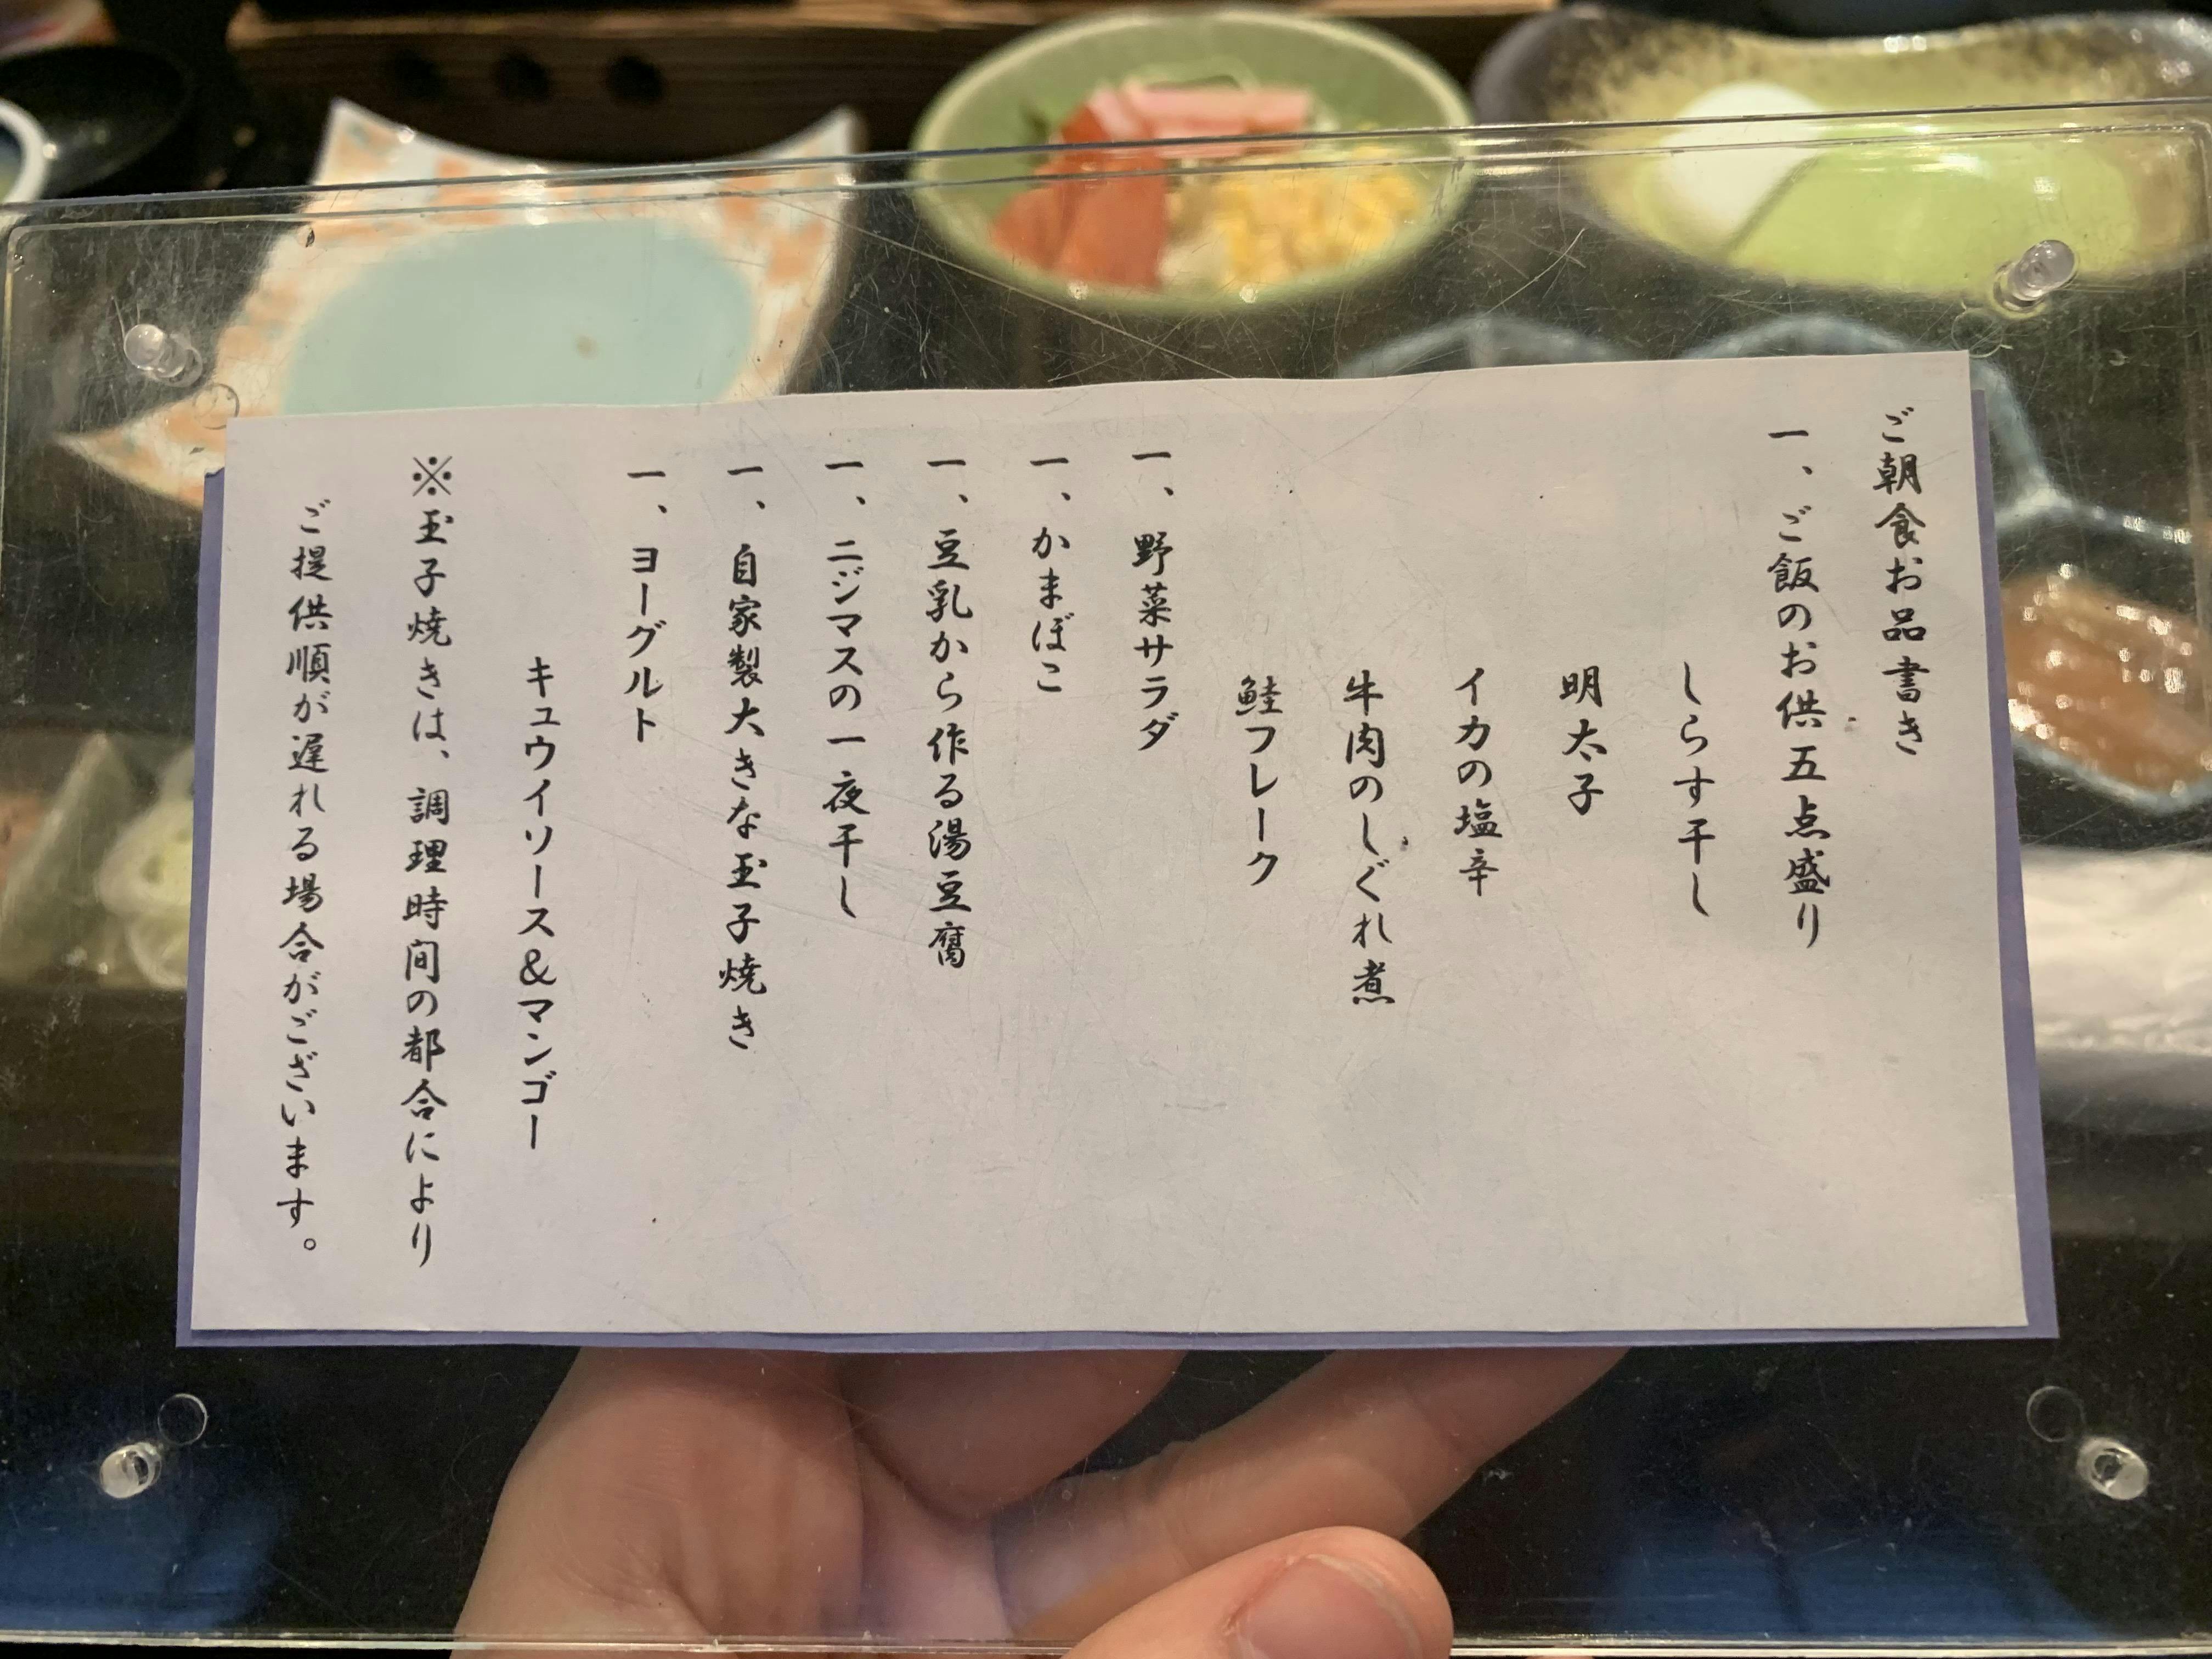 ご朝食お品書き
一、ご飯のお供五点盛り
しらす干し
明太子
イカの塩辛
牛肉のしぐれ煮
鮭フレーク
一、野菜サラダ
一、かまぼこ
一、豆乳から作る湯豆腐
一、ニジマスの一夜干し
一、自家製大きな玉子焼き
一、ヨーグルト
キュウイソース&マンゴー
※玉子焼きは、調理時間の都合により
ご提供順が遅れる場合がございます。